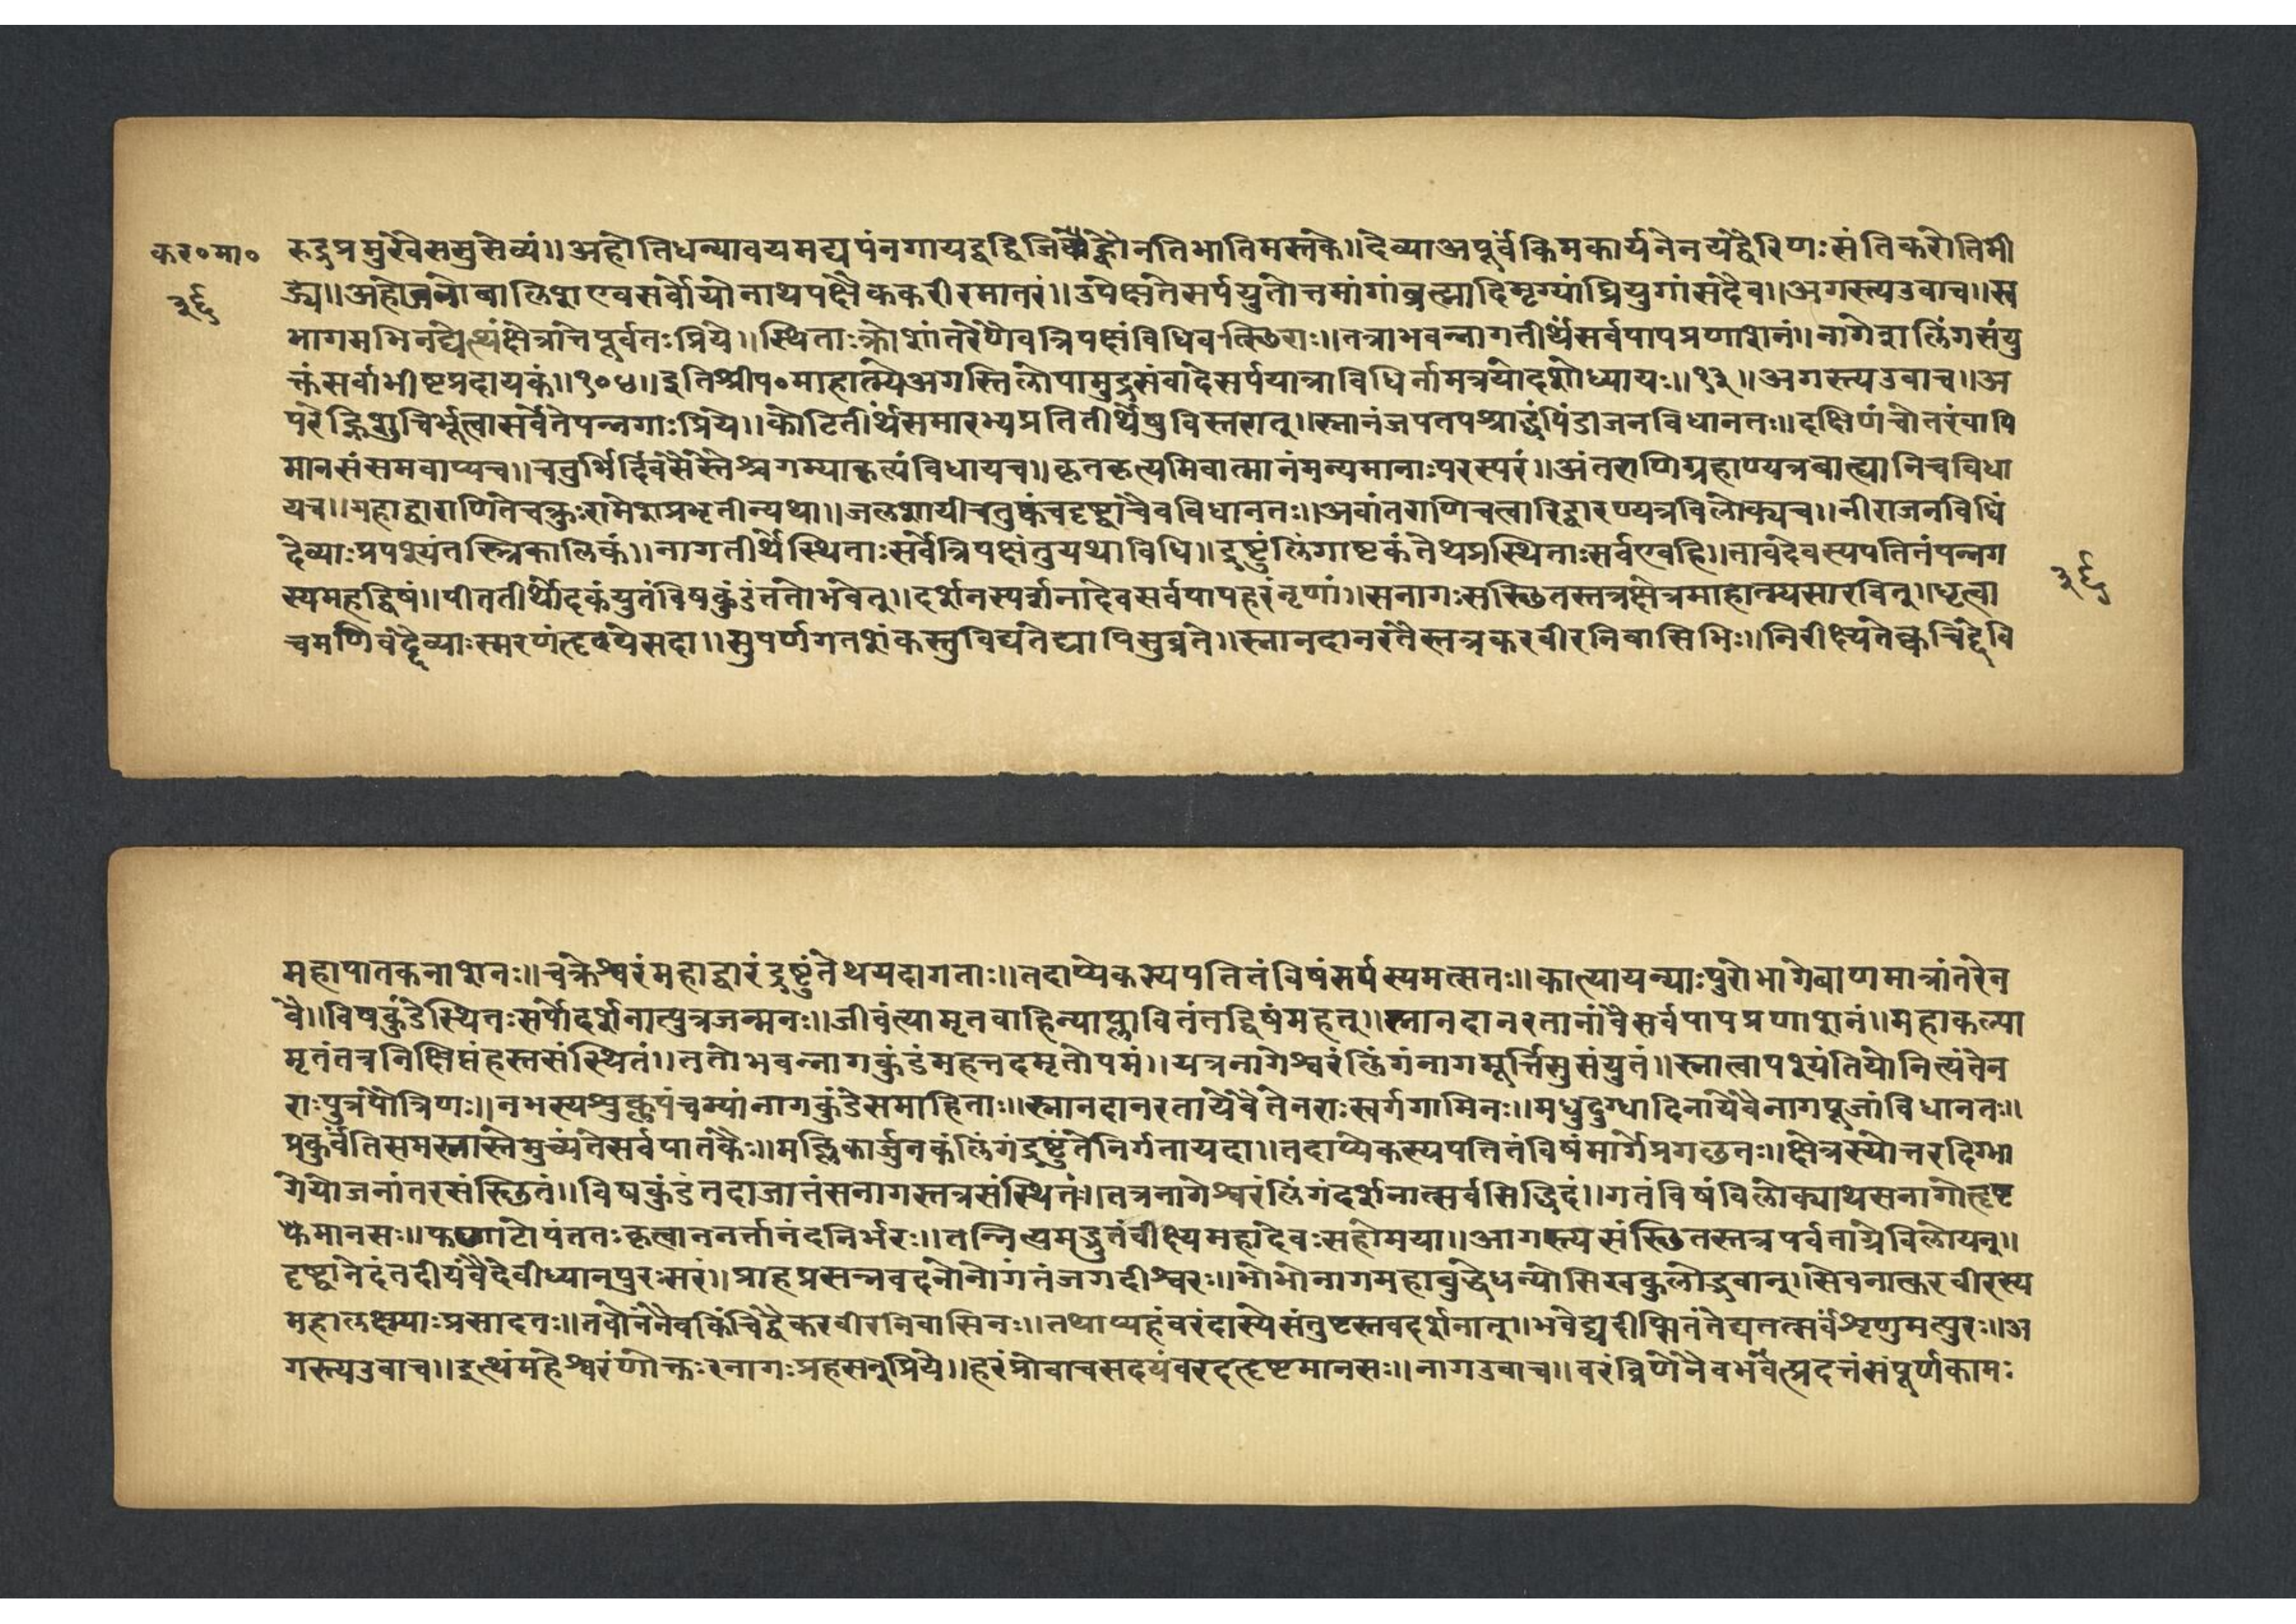 कर॰मा॰
३६
रुद्रप्रमुखैःससुसेव्यं॥अहोतिधन्यावयमद्यपंनगायद्वद्विजिह्वोनतिभातिमस्तके॥देव्याअपूर्वंकिमकार्यनेनयद्वैरिणःसंतिकरोतिमी
ड्ये॥अहोजनोबालिशएवसर्वोयोनाथपक्षैककरीरमातरं॥उपेक्षतेसर्पयुतोत्तमांगांब्रह्मादिमृग्यांघ्रियुगांसदैव॥अगस्त्यउवाच॥स्व
भागमभिनंद्येत्थंक्षेत्रांतेपूर्वतःप्रिये॥स्थिताःक्रोशांतरेणैवत्रिपक्षंविधिवत्स्छिराः॥तत्राभवन्नागतीर्थंसर्वपापप्रणाशनं॥नागेशलिंगसंयु
क्तंसर्वाभीष्टप्रदायकं॥१०४॥इतिश्रीप॰माहात्म्येअगस्तिलोपामुद्रासंवादेसर्पयात्राविधिर्नामत्रयोदशोध्यायः॥१३॥अगस्त्यउवाच॥अ
परेह्निशुचिर्भूत्वासर्वेतेपन्नगाःप्रिये॥कोटितीर्थंसमारभ्यप्रतितीर्थेषुविस्तरात्॥स्नानंजपतपश्राद्धंपिंडाजनविधानतः॥दक्षिणंचोतरंवापि
मानसंसमवाप्यच॥चतुर्भिर्दिवसैस्तैश्चगम्याकृत्यंविधायच॥कृतकृत्यमिवात्मानंमन्यमानाःपरस्परं॥अंतराणिगृहाण्यत्रबाह्यानिचविधा
यच॥महाद्वाराणितेचक्रुःरामेशप्रभृतीन्यथा॥जलशायीचतुष्कंचदृष्ट्वाचैवविधानतः॥अवांतराणिचत्वारिद्वारण्यत्रविलोक्यच॥नीराजनविधिं
देव्याःप्रपश्यंतस्त्रिकालिकं॥नागतीर्थेस्थिताःसर्वेत्रिपक्षंतुयथाविधि॥द्रष्टुंलिंगाष्टकंतेथप्रस्थिताःसर्वएवहि॥तावदेवस्यपतितंपन्नग
स्यमहद्विषं॥पीततीर्थोदकंयुतंविषकुंडंततोभवेत्॥दर्शनस्पर्शनादेवसर्वपापहरंनृणां॥सनागःसस्छितस्तत्रक्षेत्रमाहात्म्यसारवित्॥धृत्वा
३६
चमणिवद्देव्याःस्मरणंहृदयेसदा॥सुपर्णगतशंकस्तुविद्यतेद्यापिसुव्रते॥स्नानदानरतैस्तत्रकरवीरनिवासिभिः॥निरीक्ष्यतेक्वचिद्देवि
महापातकनाशनः॥चक्रेश्वरंमहाद्वारंद्रष्टुंतेथयदागताः॥तदाप्येकस्यपतितंविषंसर्पस्यमत्सतः॥कात्यायन्याःपुरोभागेबाणमात्रांतरेन
वै॥विषकुंडेस्थितःसर्पोदर्शनात्पुत्रजन्मनः॥जीवंत्यामृतवाहिन्याप्लावितंतद्विषंमहत्॥स्नानदानरतानांवैसर्वपापप्रणाशनं॥महाकल्पा
मृतंतत्रनिक्षिप्तंहस्तसंस्थितं॥ततोभवन्नागकुंडंमहत्तदमृतोपमं॥यत्रनागेश्वरंलिंगंनागमूर्त्तिसुसंयुतं॥स्नात्वापश्यंतियोनित्यंतेन
राःपुत्रपौत्रिणः॥नभस्यशुक्लपंचम्यांनागकुंडेसमाहिताः॥स्नानदानरतायेवैतेनराःस्वर्गगामिनः॥मधुदुग्धादिनायेवैनागपूजांविधानतः॥
प्रकुर्वंतिसमस्तास्तेमुच्यंतेसर्वपातकैः॥मल्लिकार्जुनकंलिंगंद्रष्टुंतेनिर्गतायदा॥तदाप्येकस्यपतितंविषंमार्गेप्रगछतः॥क्षेत्रस्योत्तरदिग्भा
गेयोजनांतरसंस्छितं॥विषकुंडंतदाजातंसनागस्तत्रसंस्थितः॥तत्रनागेश्वरंलिंगंदर्शनात्सर्वसिद्धिदं॥गतंविषंविलोक्याथसनागोहृष्ट
मानसः॥फणाटोपंततःकृत्वाननर्त्तानंदनिर्भरः॥तन्नित्यमद्भुतंवीक्ष्यमहादेवःसहोमया॥आगत्यसंस्छितस्तत्रपर्वताग्रेविलोयन्॥
दृष्ट्वानेदंतदीयंवैदेवीध्यान्पुरःसरं॥प्राहप्रसन्नवदनोनोगतंजगदीश्वरः॥भोभोनागमहाबुद्धेधन्योसिखकुलोद्भवान्॥सेवनात्करवीरस्य
महालक्ष्म्याःप्रसादतः॥तवोनंनैवकिंचिद्वैकरवीरनिवासिनः॥तथाप्यहंवरंदास्येसंतुष्टस्तवदर्शनात्॥भवेद्यदीप्सितंतेद्यतत्सर्वंश्रृणुमत्पुरः॥अ
गस्त्यउवाच॥इत्थंमहेश्वरेणोक्तःरनागःप्रहसन्प्रिये॥हरंप्रोवाचसदयंवरदहृष्टमानसः॥नागउवाच॥वरंव्रिणेनैवभवत्प्रदत्तंसंपूर्णकामः